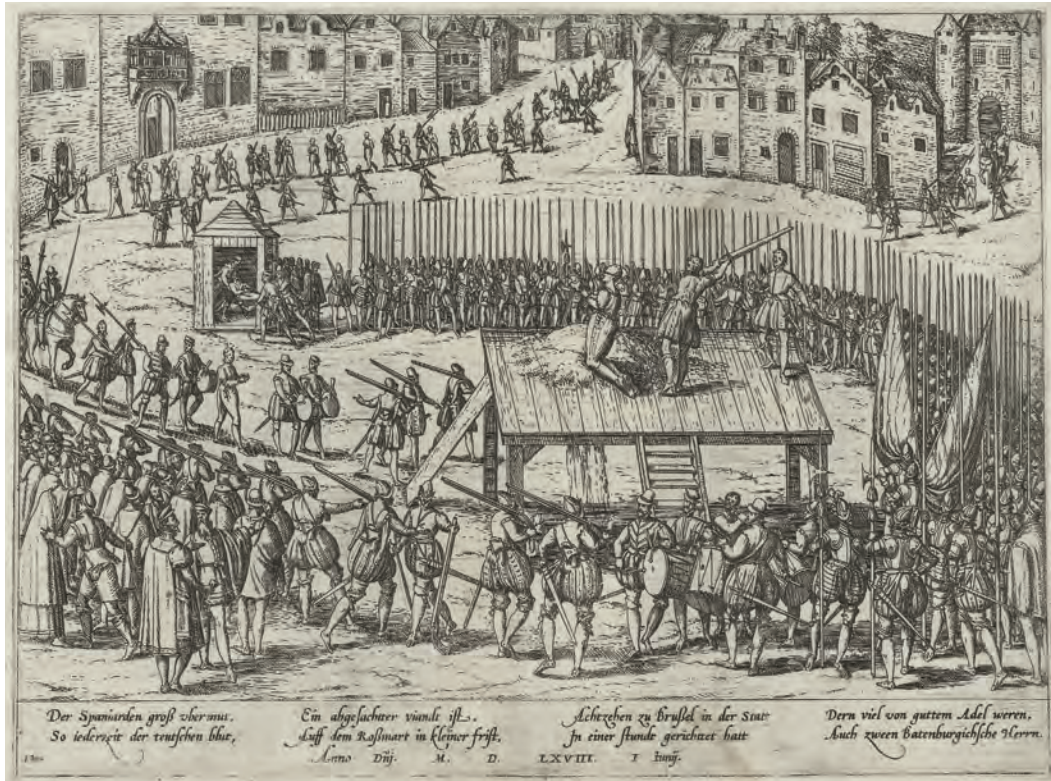 Der Spaniarden groß vbermut,
So iederzeit der teutschen blut,
Ein abgesachter viandt ist,
Auff dem Roßmart in kleiner frist,
Achtzehen zu Brußel in der Statt
In einer stundt gerichtet hatt
Dern viel von guttem Adel weren,
Auch zween Batenburgichsche Herrn.
Anno Dñj. M. D. LXVIII. I Junij.